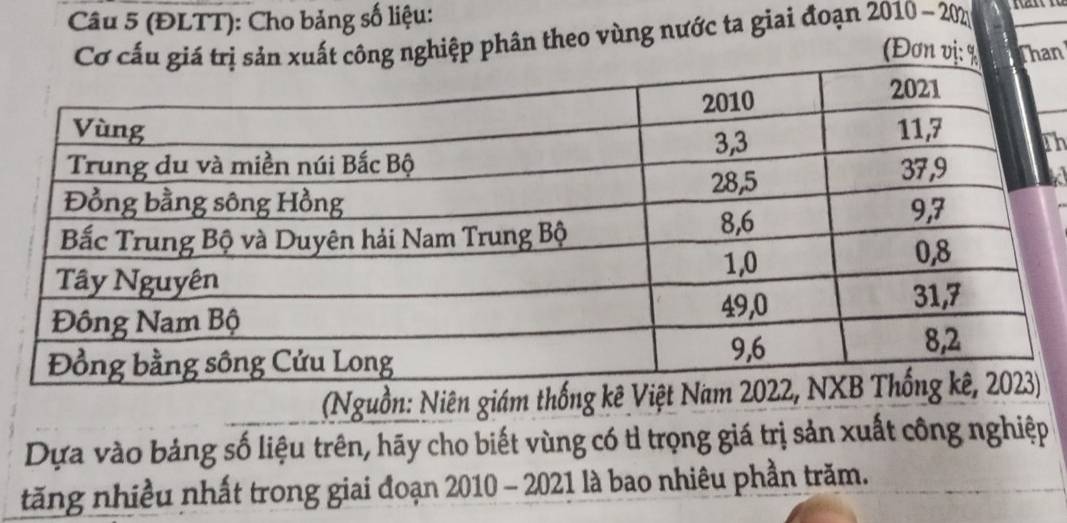 Câu 5 (ĐLTT): Cho bảng số liệu:
Cơ cấu giá trị sản xuất công nghiệp phân theo vùng nước ta giai đoạn 2010 – 2021
(Đơn vị: %
Than
Vùng 2010 2021
Trung du và miền núi Bắc Bộ 3,3 11,7
Th
Đồng bằng sông Hồng 28,5 37,9
Bắc Trung Bộ và Duyên hải Nam Trung Bộ 8,6 9,7
Tây Nguyên 1,0 0,8
Đông Nam Bộ 49,0 31,7
Đồng bằng sông Cửu Long 9,6 8,2
(Nguồn: Niên giám thống kê Việt Nam 2022, NXB Thống kê, 2023)
Dựa vào bảng số liệu trên, hãy cho biết vùng có tỉ trọng giá trị sản xuất công nghiệp
tăng nhiều nhất trong giai đoạn 2010 – 2021 là bao nhiêu phần trăm.